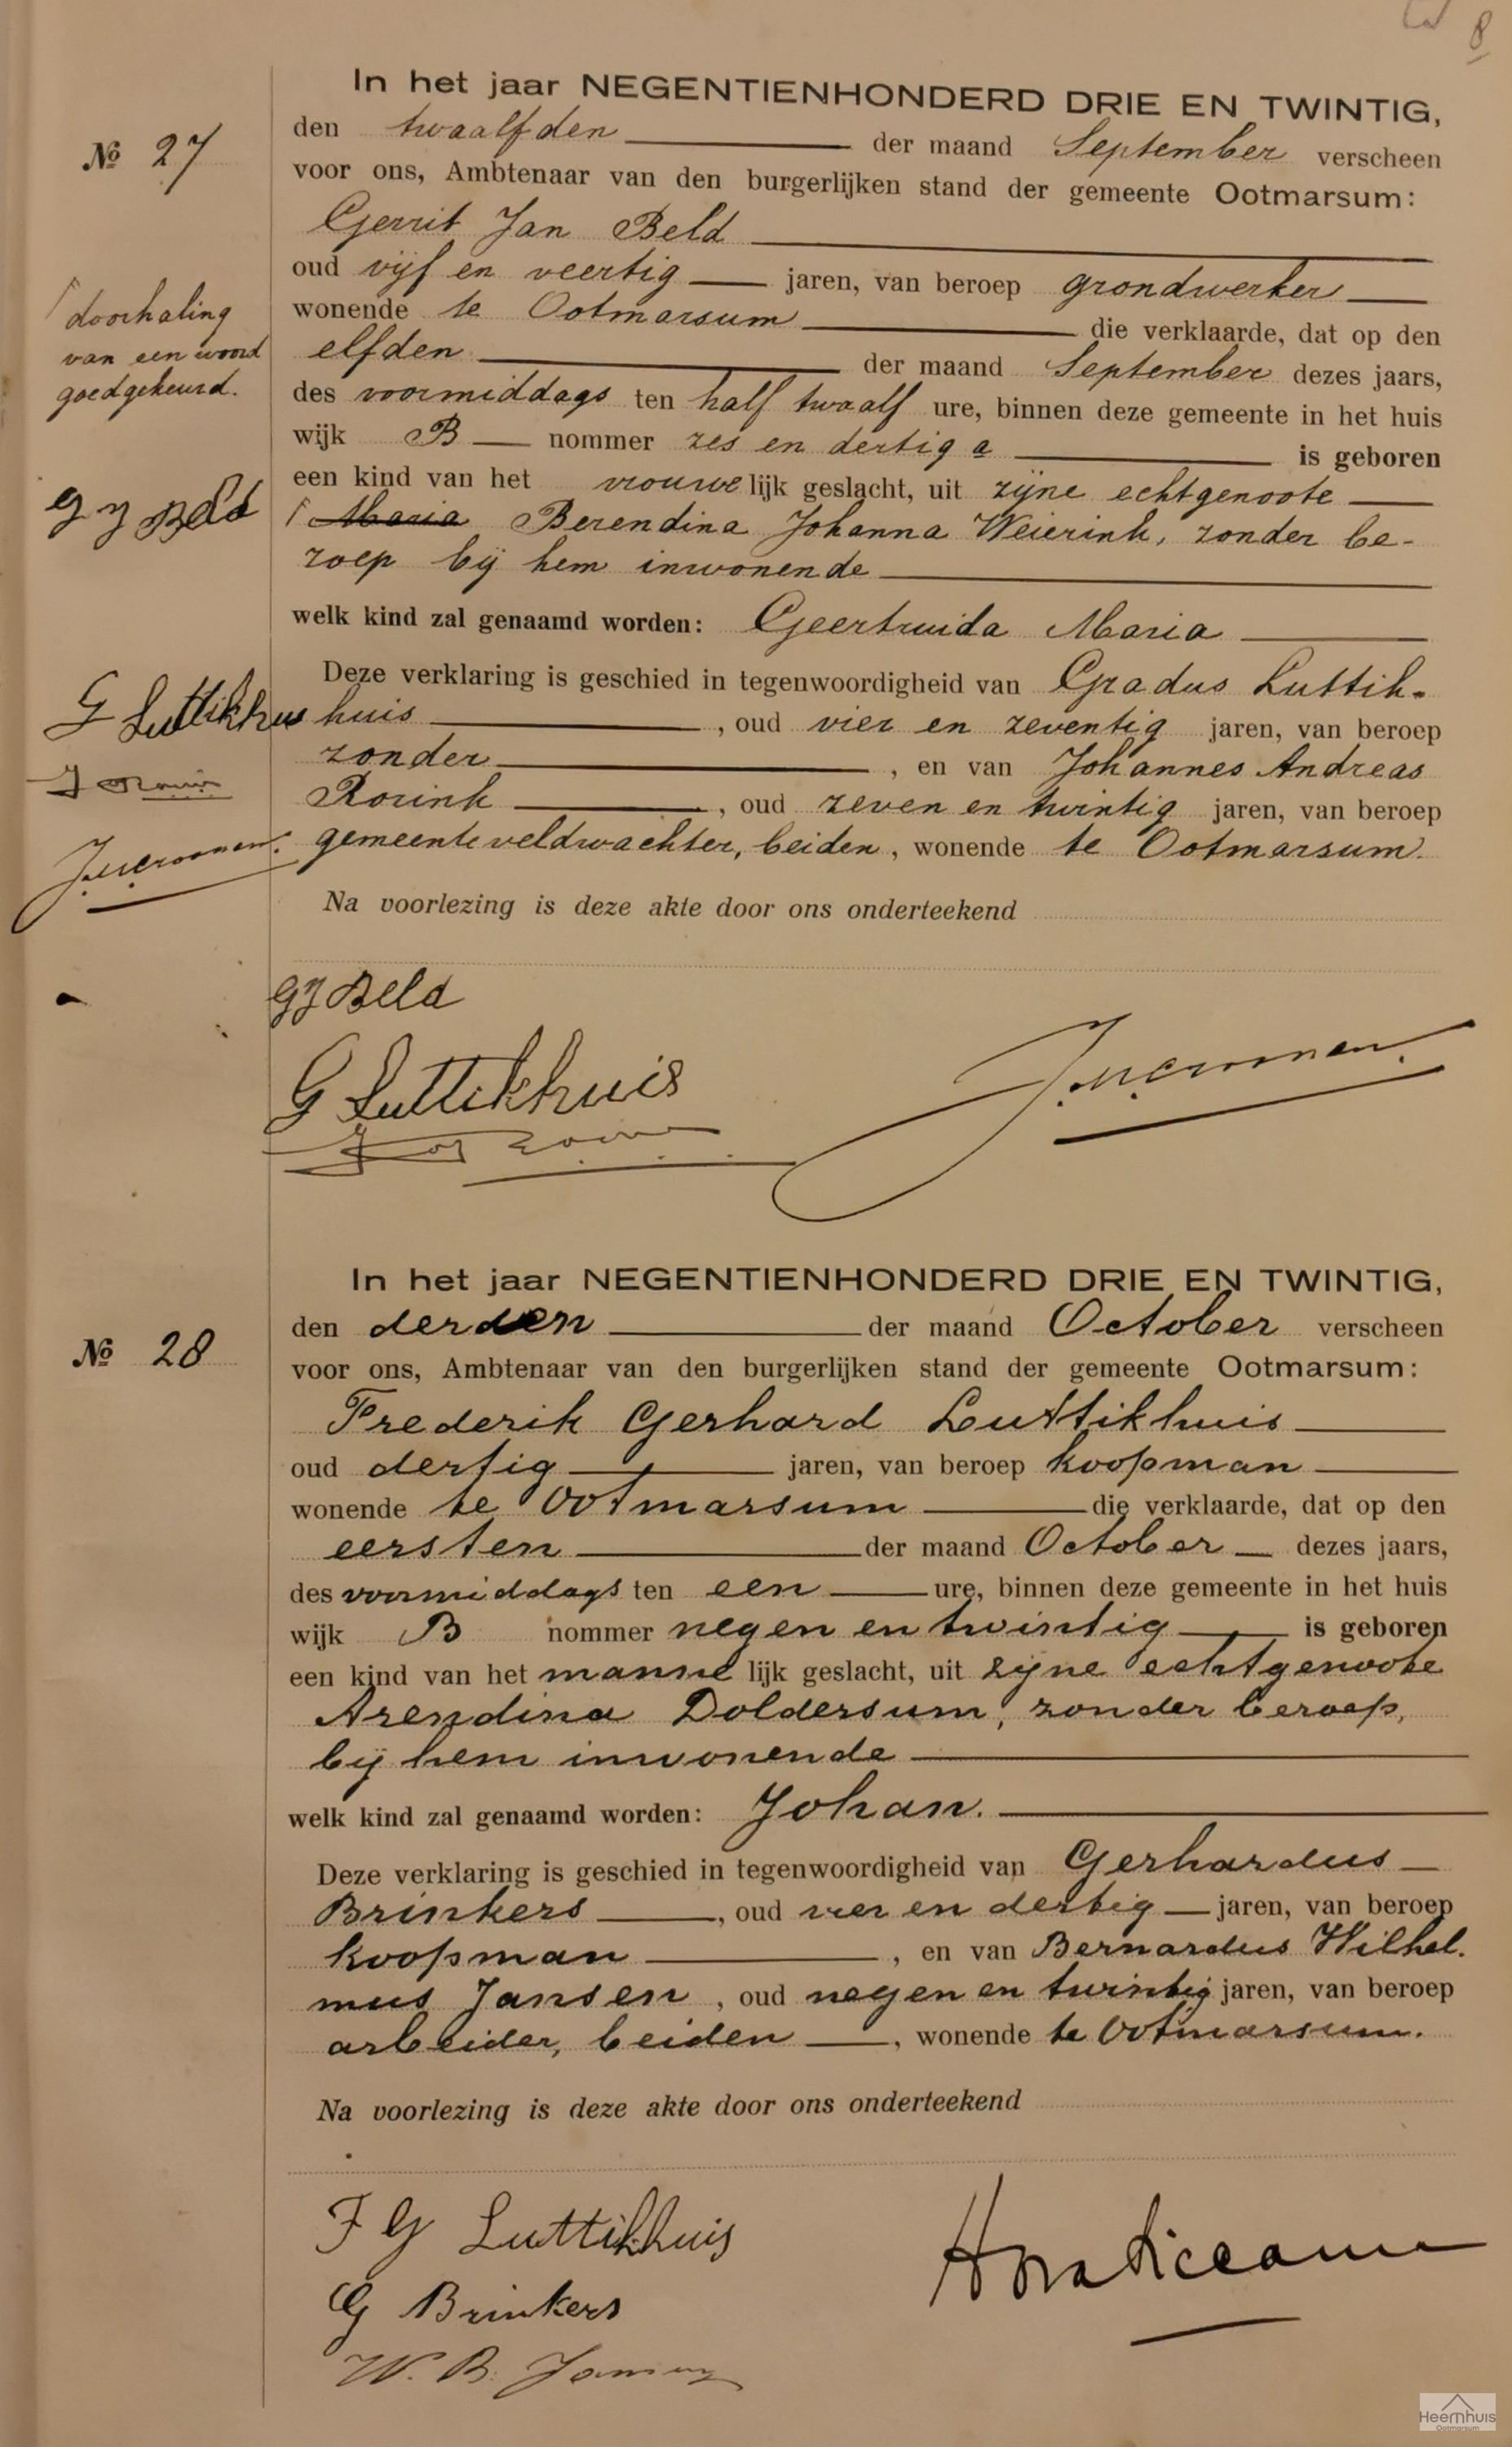 8
In het jaar NEGENTIENHONDERD DRIE EN TWINTIG,
№ 27
den twaalfden der maand September verscheen
voor ons, Ambtenaar van den burgerlijken stand der gemeente Ootmarsum:
Gerrit Jan Beld
oud vijf en veertig jaren, van beroep grondwerker
wonende te Ootmarsum die verklaarde, dat op den
elfden der maand September dezes jaars,
des voormiddags ten half twaalf ure, binnen deze gemeente in het huis
wijk B nommer zes en dertig a is geboren
een kind van het vrouwelijk geslacht, uit zijne echtgenoote
Maria Berendina Johanna Weierink, zonder be-
roep bij hem inwonende
welk kind zal genaamd worden: Geertruida Maria
Deze verklaring is geschied in tegenwoordigheid van Gradus Luttik-
huis, oud vier en zeventig jaren, van beroep
zonder, en van Johannes Andreas
Rorink, oud zeven en twintig jaren, van beroep
gemeenteveldwachter, beiden, wonende te Ootmarsum.
Na voorlezing is deze akte door ons onderteekend
doorhaling
van een woord
goedgekeurd.
G J Beld
G Luttikhuis
GJ Beld
G Luttikhuis
In het jaar NEGENTIENHONDERD DRIE EN TWINTIG,
№ 28
den derden der maand October verscheen
voor ons, Ambtenaar van den burgerlijken stand der gemeente Ootmarsum:
Frederik Gerhard Luttikhuis
oud dertig jaren, van beroep koopman
wonende te Ootmarsum die verklaarde, dat op den
eersten der maand October dezes jaars,
des voormiddags ten een ure, binnen deze gemeente in het huis
wijk B nommer negen en twintig is geboren
een kind van het mannelijk geslacht, uit zijne echtgenoote
Arendina Doldersum, zonder beroep,
bij hem inwonende
welk kind zal genaamd worden: Johan.
Deze verklaring is geschied in tegenwoordigheid van Gerhardus
Brinkers, oud vier en dertig jaren, van beroep
koopman, en van Bernardus Wilhel.
mus Jansen, oud negen en twintig jaren, van beroep
arbeider, beiden, wonende te Ootmarsum.
Na voorlezing is deze akte door ons onderteekend
F G Luttikhuis
G Brinkers
W. B. Jansen
Heemhuis
Ootmarsum